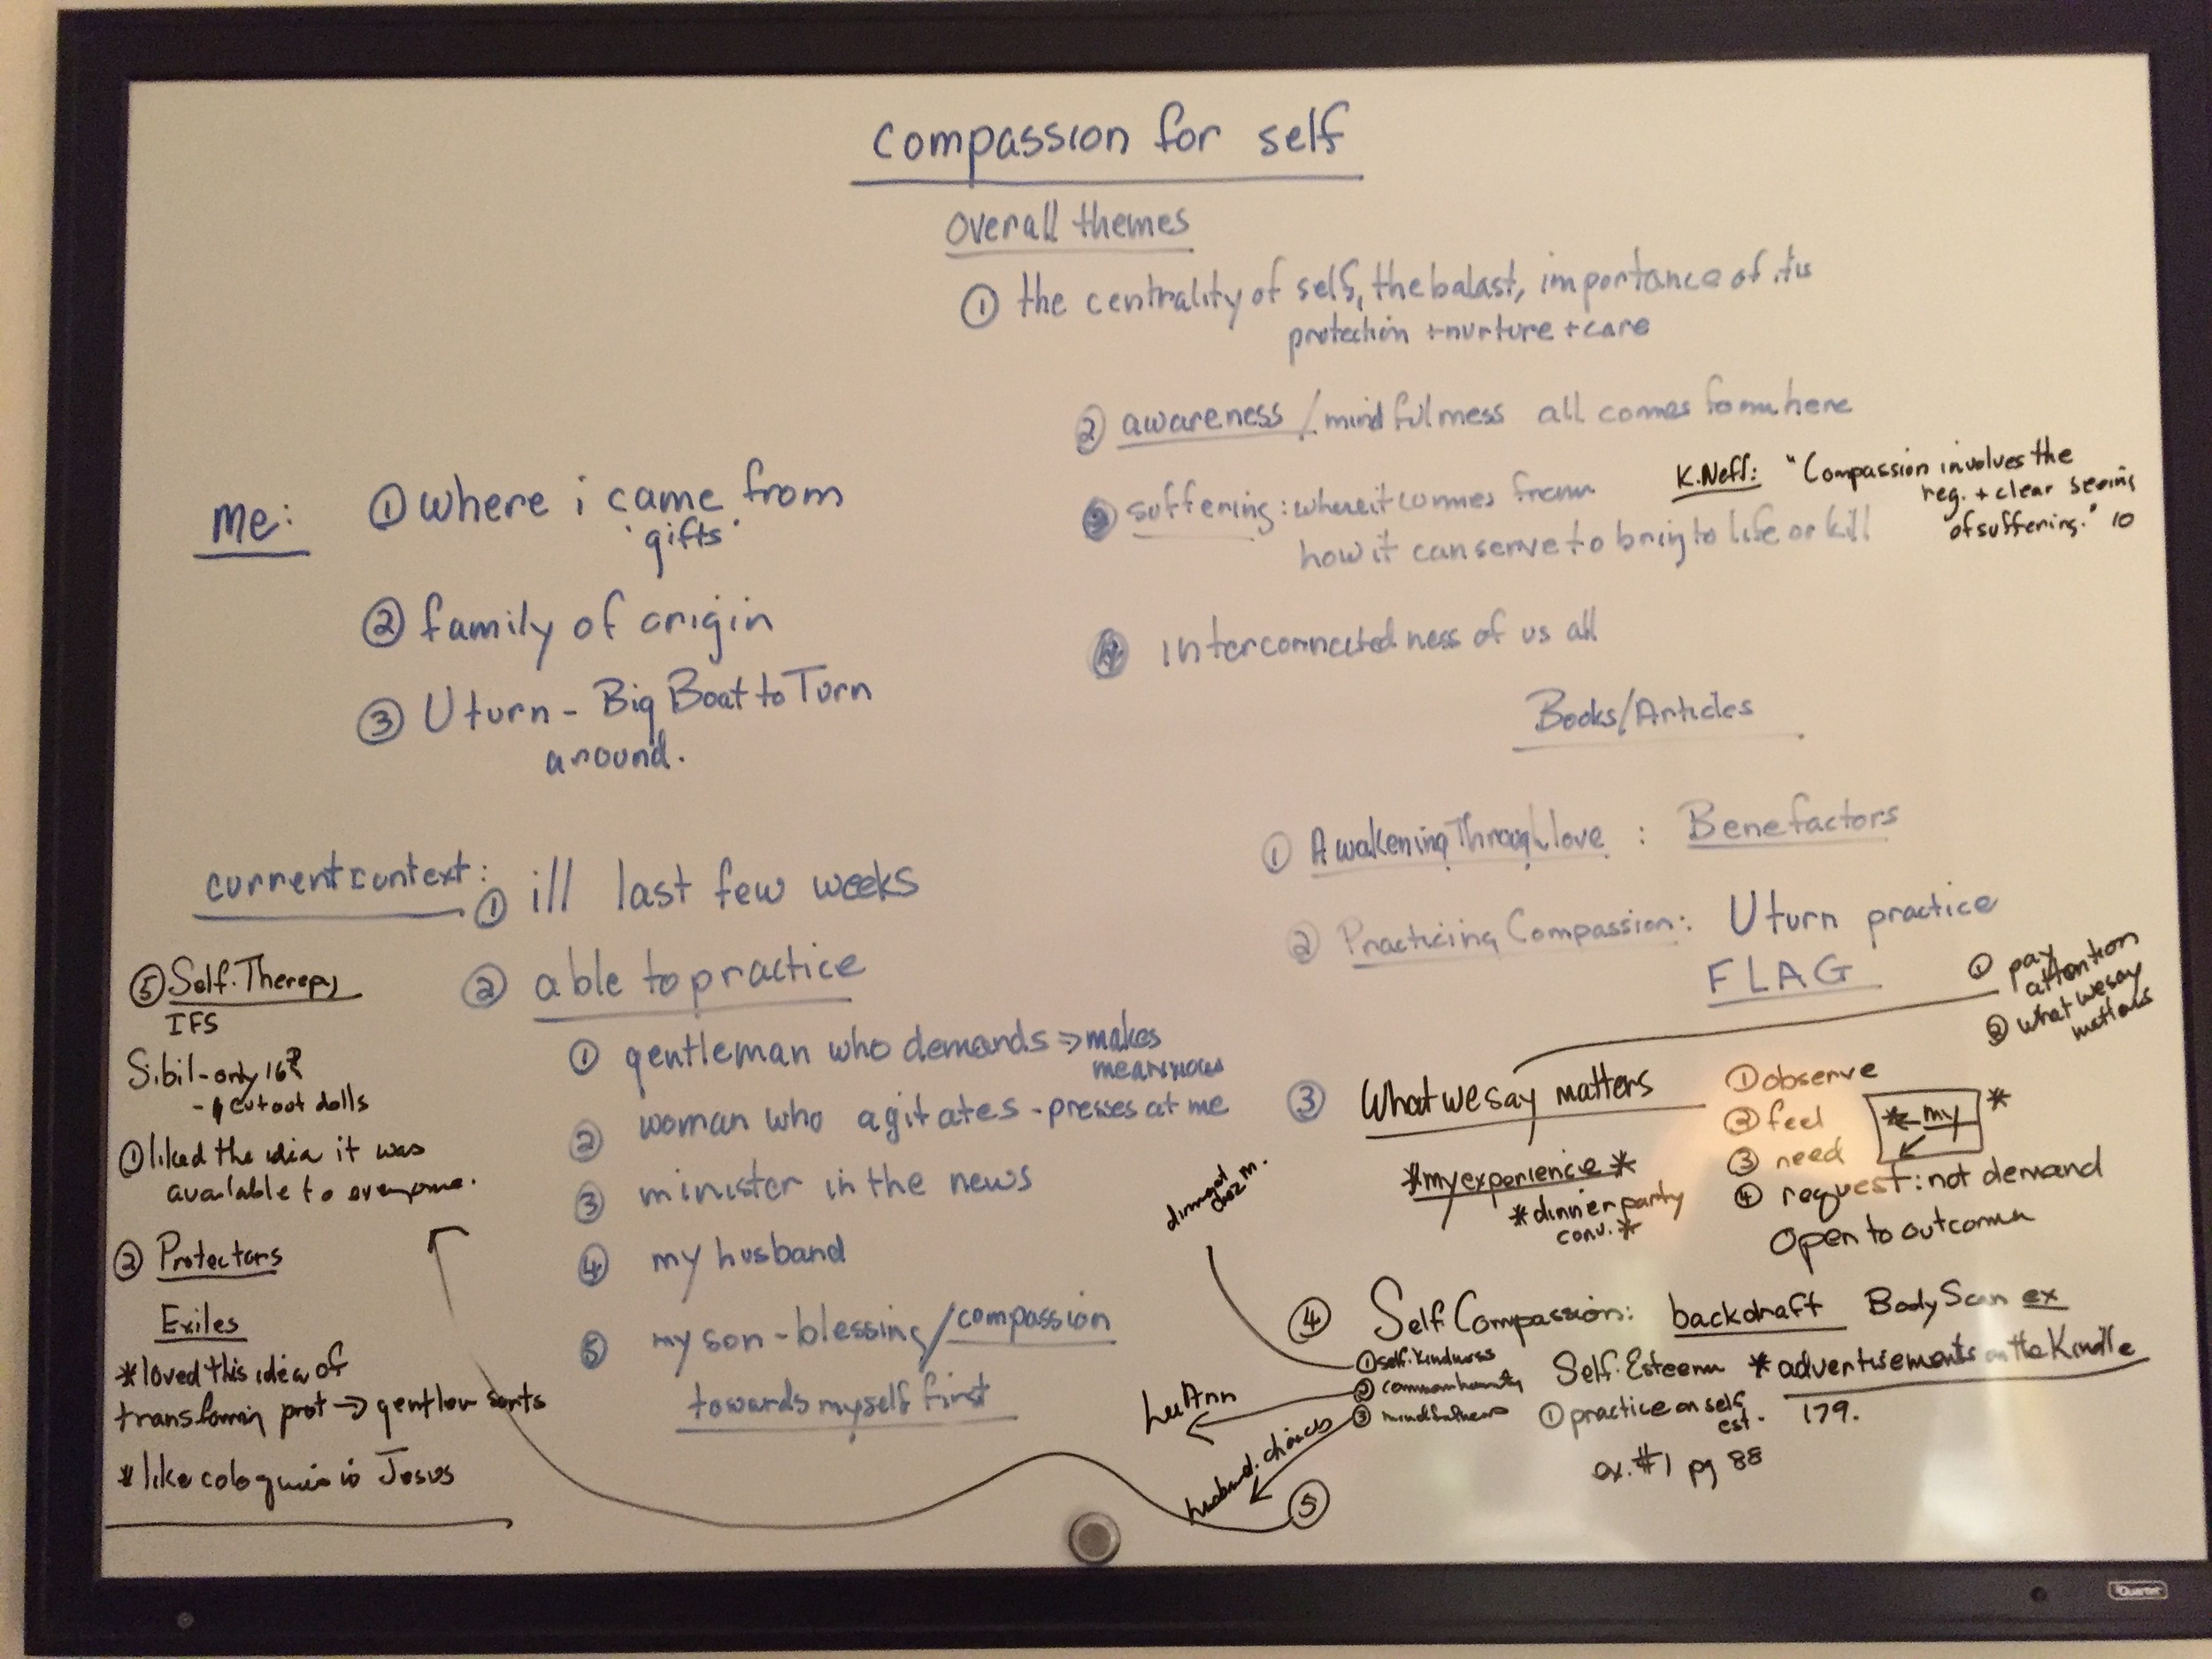 compassion for self
overall themes
① the centrality of self, the balast, importance of its
protection + nurture + care
② awareness / mindfulness all comes from here
③ suffering: where it comes from
how it can serve to bring to life or kill
K. Neff: "Compassion involves the
reg. + clear seeing
of suffering." 10
④ interconnectedness of us all
me: ① where i came from
'gifts'
② family of origin
③ U turn - Big Boat to Turn
around.
current context:
① ill last few weeks
② able to practice
① gentleman who demands ⇒ makes
me anxious
② woman who agitates - presses at me
③ minister in the news
④ my husband
⑤ my son - blessing / compassion
towards myself first
Books/Articles
① Awakening Through Love : Benefactors
② Practicing Compassion: U turn practice
FLAG
③ What we say matters
① pay
attention
② what we say
matters
① observe
② feel
③ need
④ request: not demand
Open to outcome
* my *
*my experience*
*dinner party
conv.*
④ Self Compassion: backdraft Body Scan ex
① self-kindness
② common humanity
③ mindfulness
Self-Esteem * advertisements on the Kindle
179.
① practice on self
est.
ex. #1 pg 88
dinner at
chez m.
LuAnn
husband: choices
⑤
⑤ Self-Therapy
IFS
Sibil - only 16?
- cutout dolls
① liked the idea it was
available to everyone.
② Protectors
Exiles
*loved this idea of
transforming prot → gentler
* like to Jesus
Quartet